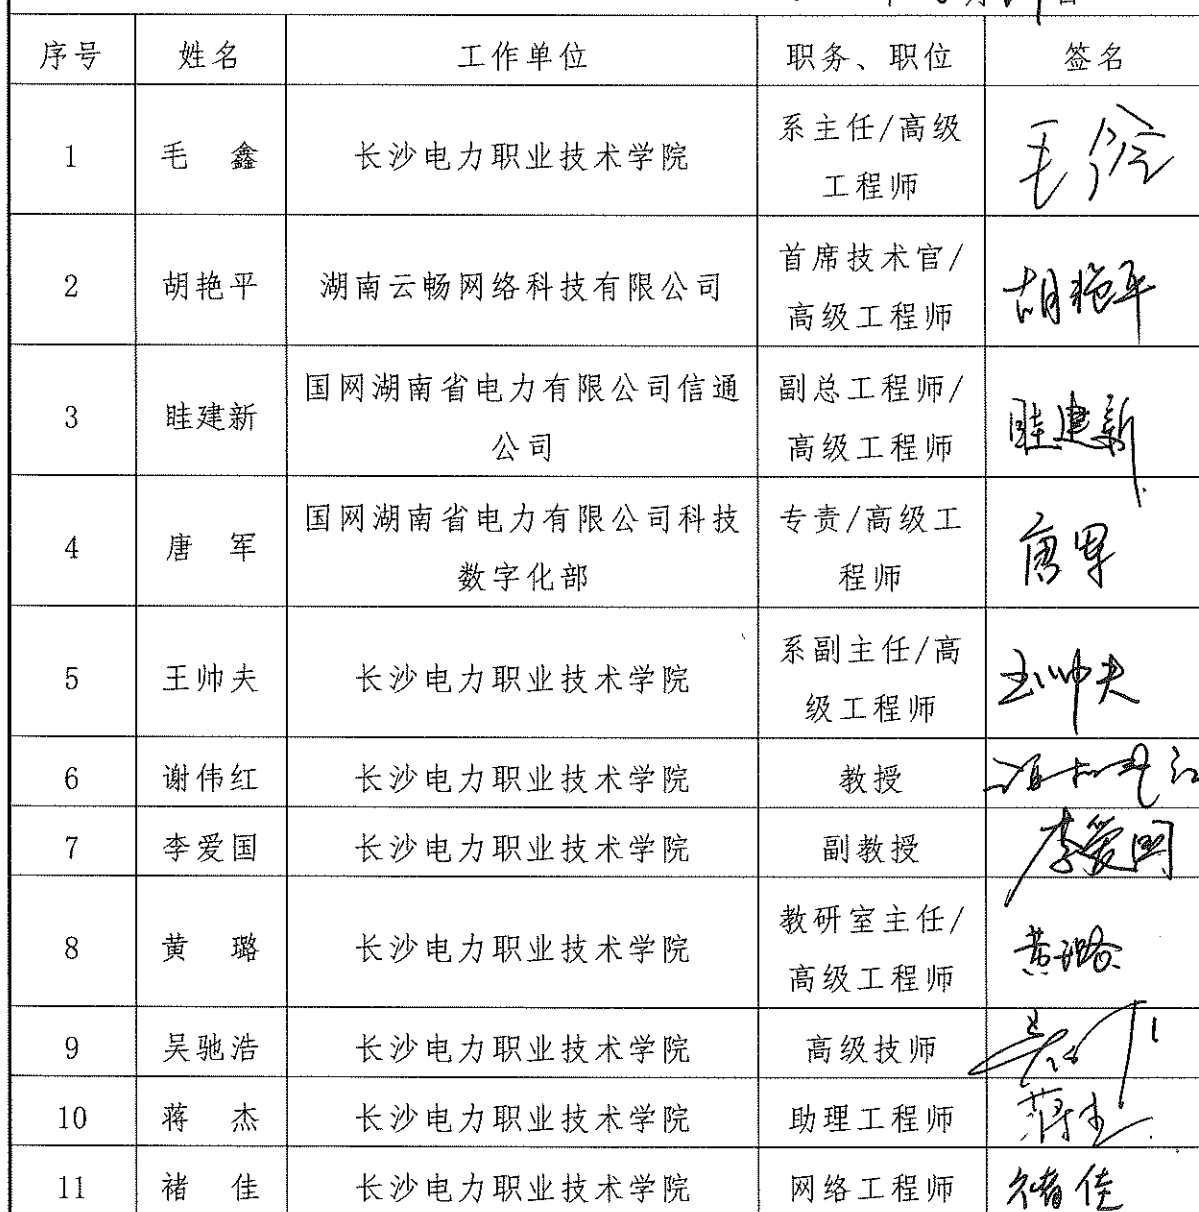 年 月 日
序号 姓名 工作单位 职务、职位 签名
1 毛 鑫 长沙电力职业技术学院 系主任/高级
工程师 毛鑫
2 胡艳平 湖南云畅网络科技有限公司 首席技术官/
高级工程师 胡艳平
3 眭建新 国网湖南省电力有限公司信通
公司 副总工程师/
高级工程师 眭建新
4 唐 军 国网湖南省电力有限公司科技
数字化部 专责/高级工
程师 唐军
5 王帅夫 长沙电力职业技术学院 系副主任/高
级工程师 王帅夫
6 谢伟红 长沙电力职业技术学院 教授
7 李爱国 长沙电力职业技术学院 副教授 李爱国
8 黄 璐 长沙电力职业技术学院 教研室主任/
高级工程师 黄璐
9 吴驰浩 长沙电力职业技术学院 高级技师
10 蒋 杰 长沙电力职业技术学院 助理工程师 蒋杰
11 褚 佳 长沙电力职业技术学院 网络工程师 褚佳